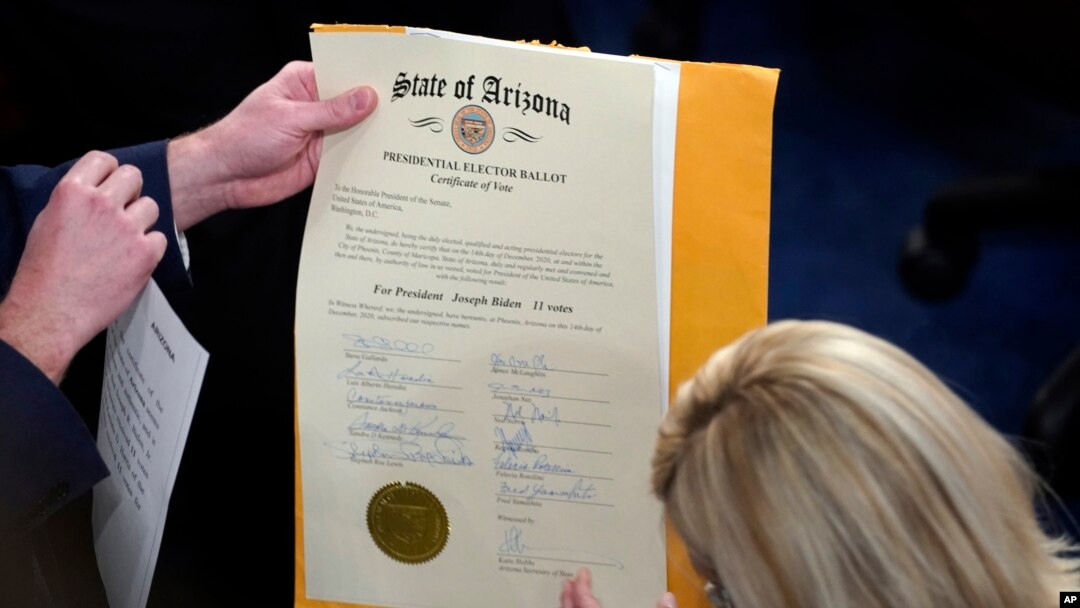 State of Arizona
PRESIDENTIAL ELECTOR BALLOT
Certificate of Vote
To the Honorable President of the Senate,
United States of America,
Washington, D.C.
We, the undersigned, being the duly elected, qualified and acting presidential electors for the
State of Arizona, do hereby certify that on the 14th day of December, 2020, at and within the
City of Phoenix, County of Maricopa, State of Arizona, duly and regularly met and convened and
then and there, by authority of law in us vested, voted for President of the United States of America,
with the following result:
For President Joseph Biden 11 votes
In Witness Whereof, we, the undersigned, have hereunto, at Phoenix, Arizona on this 14th day of
December, 2020, subscribed our respective names.
Steve Gallardo
Luis Alberto Heredia
Constance Jackson
Sandra D Kennedy
Stephen Roe Lewis
James McLaughlin
Jonathan Nez
Ned Norris
Felicia Rotellini
Fred Yamashita
Witnessed by
Katie Hobbs
Arizona Secretary of State
ARIZONA
certificate of the
Arizona
and it
votes
of the
votes for
11
AP